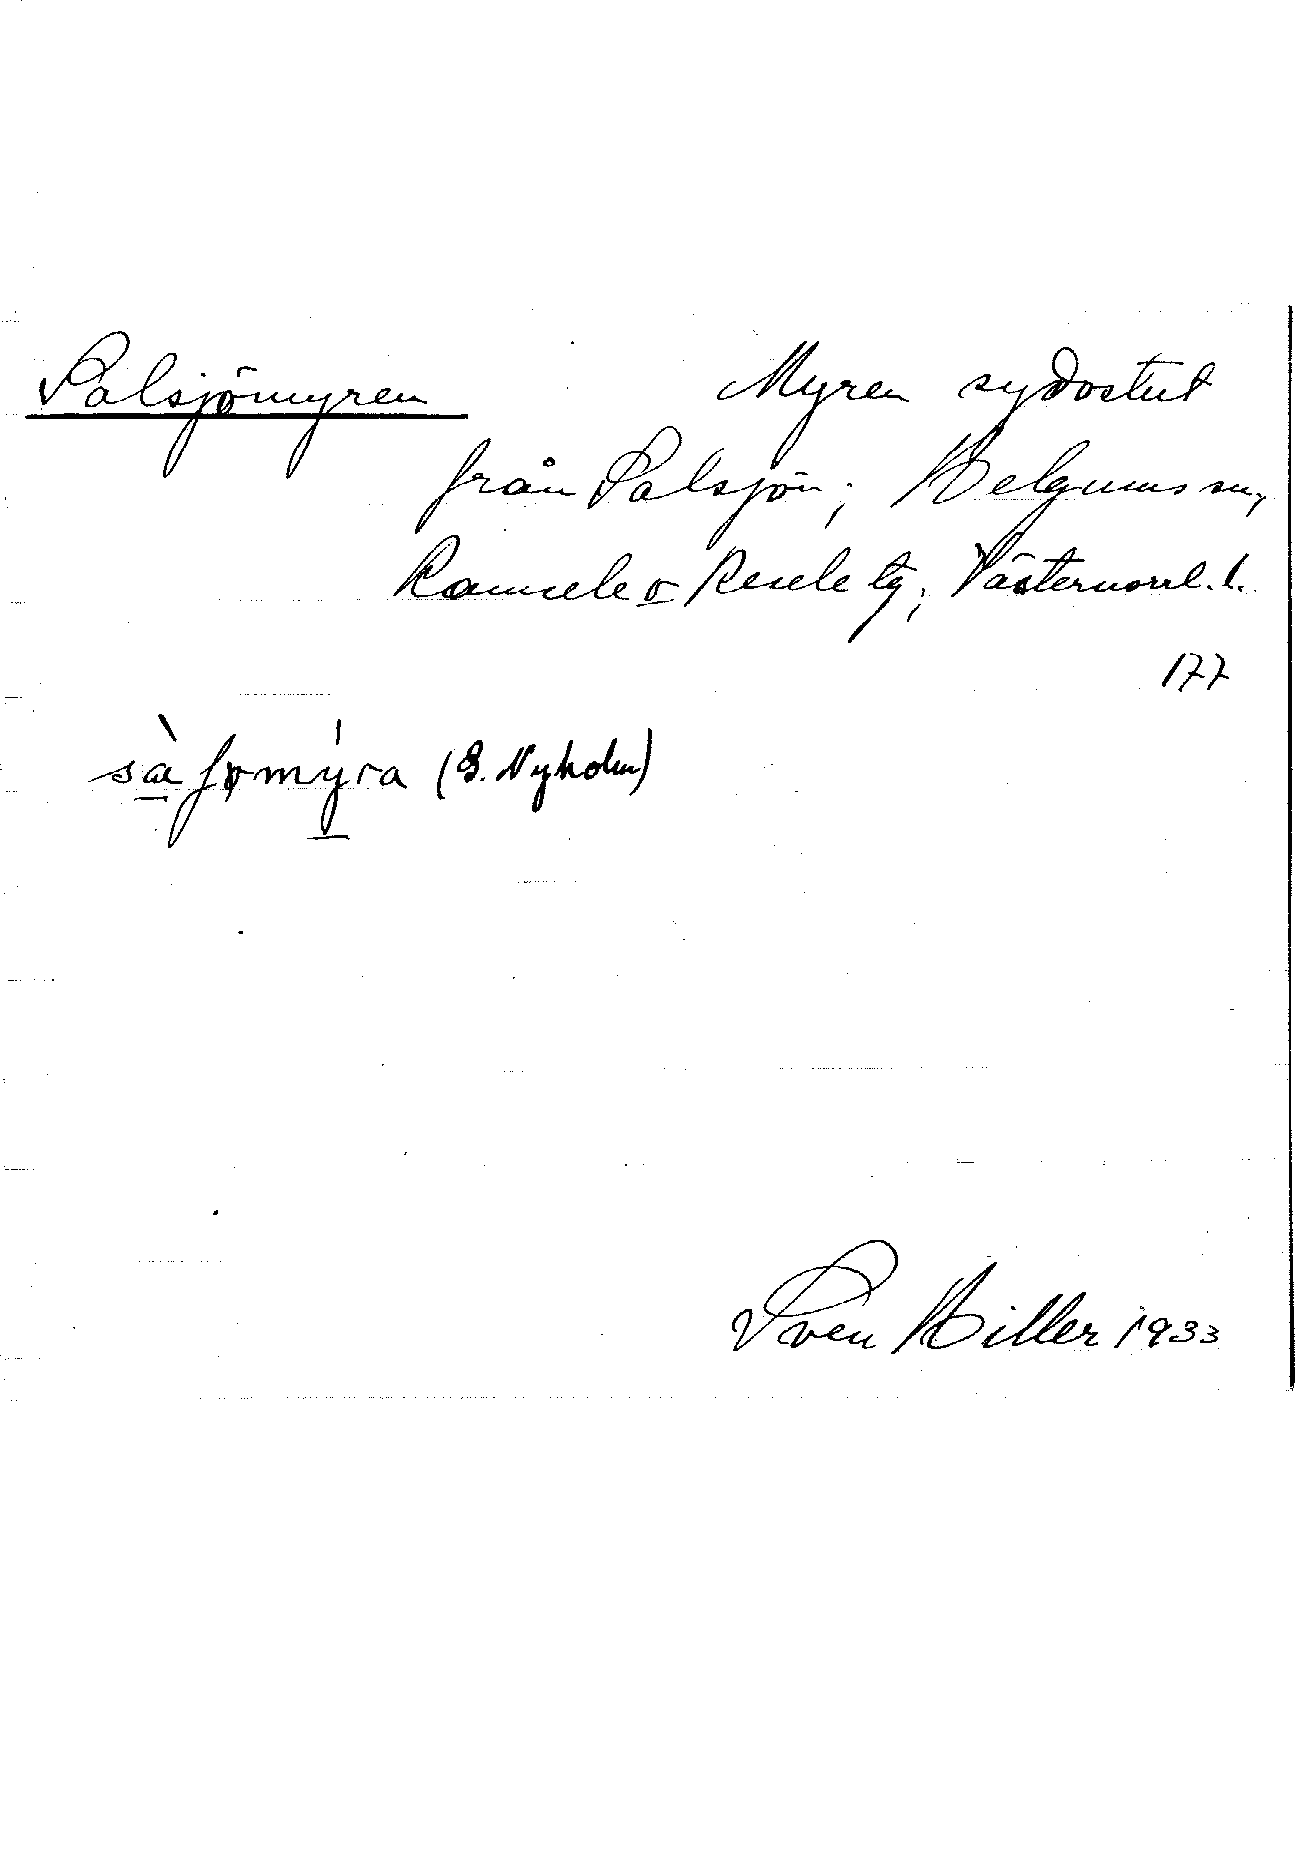 Salsjömyren Myren sydostut
från Salsjön; Helgums sn,
Ramsele o Resele tg; Västernorrl. l.
177
(G. Nyholm)
Sven Hiller 1933